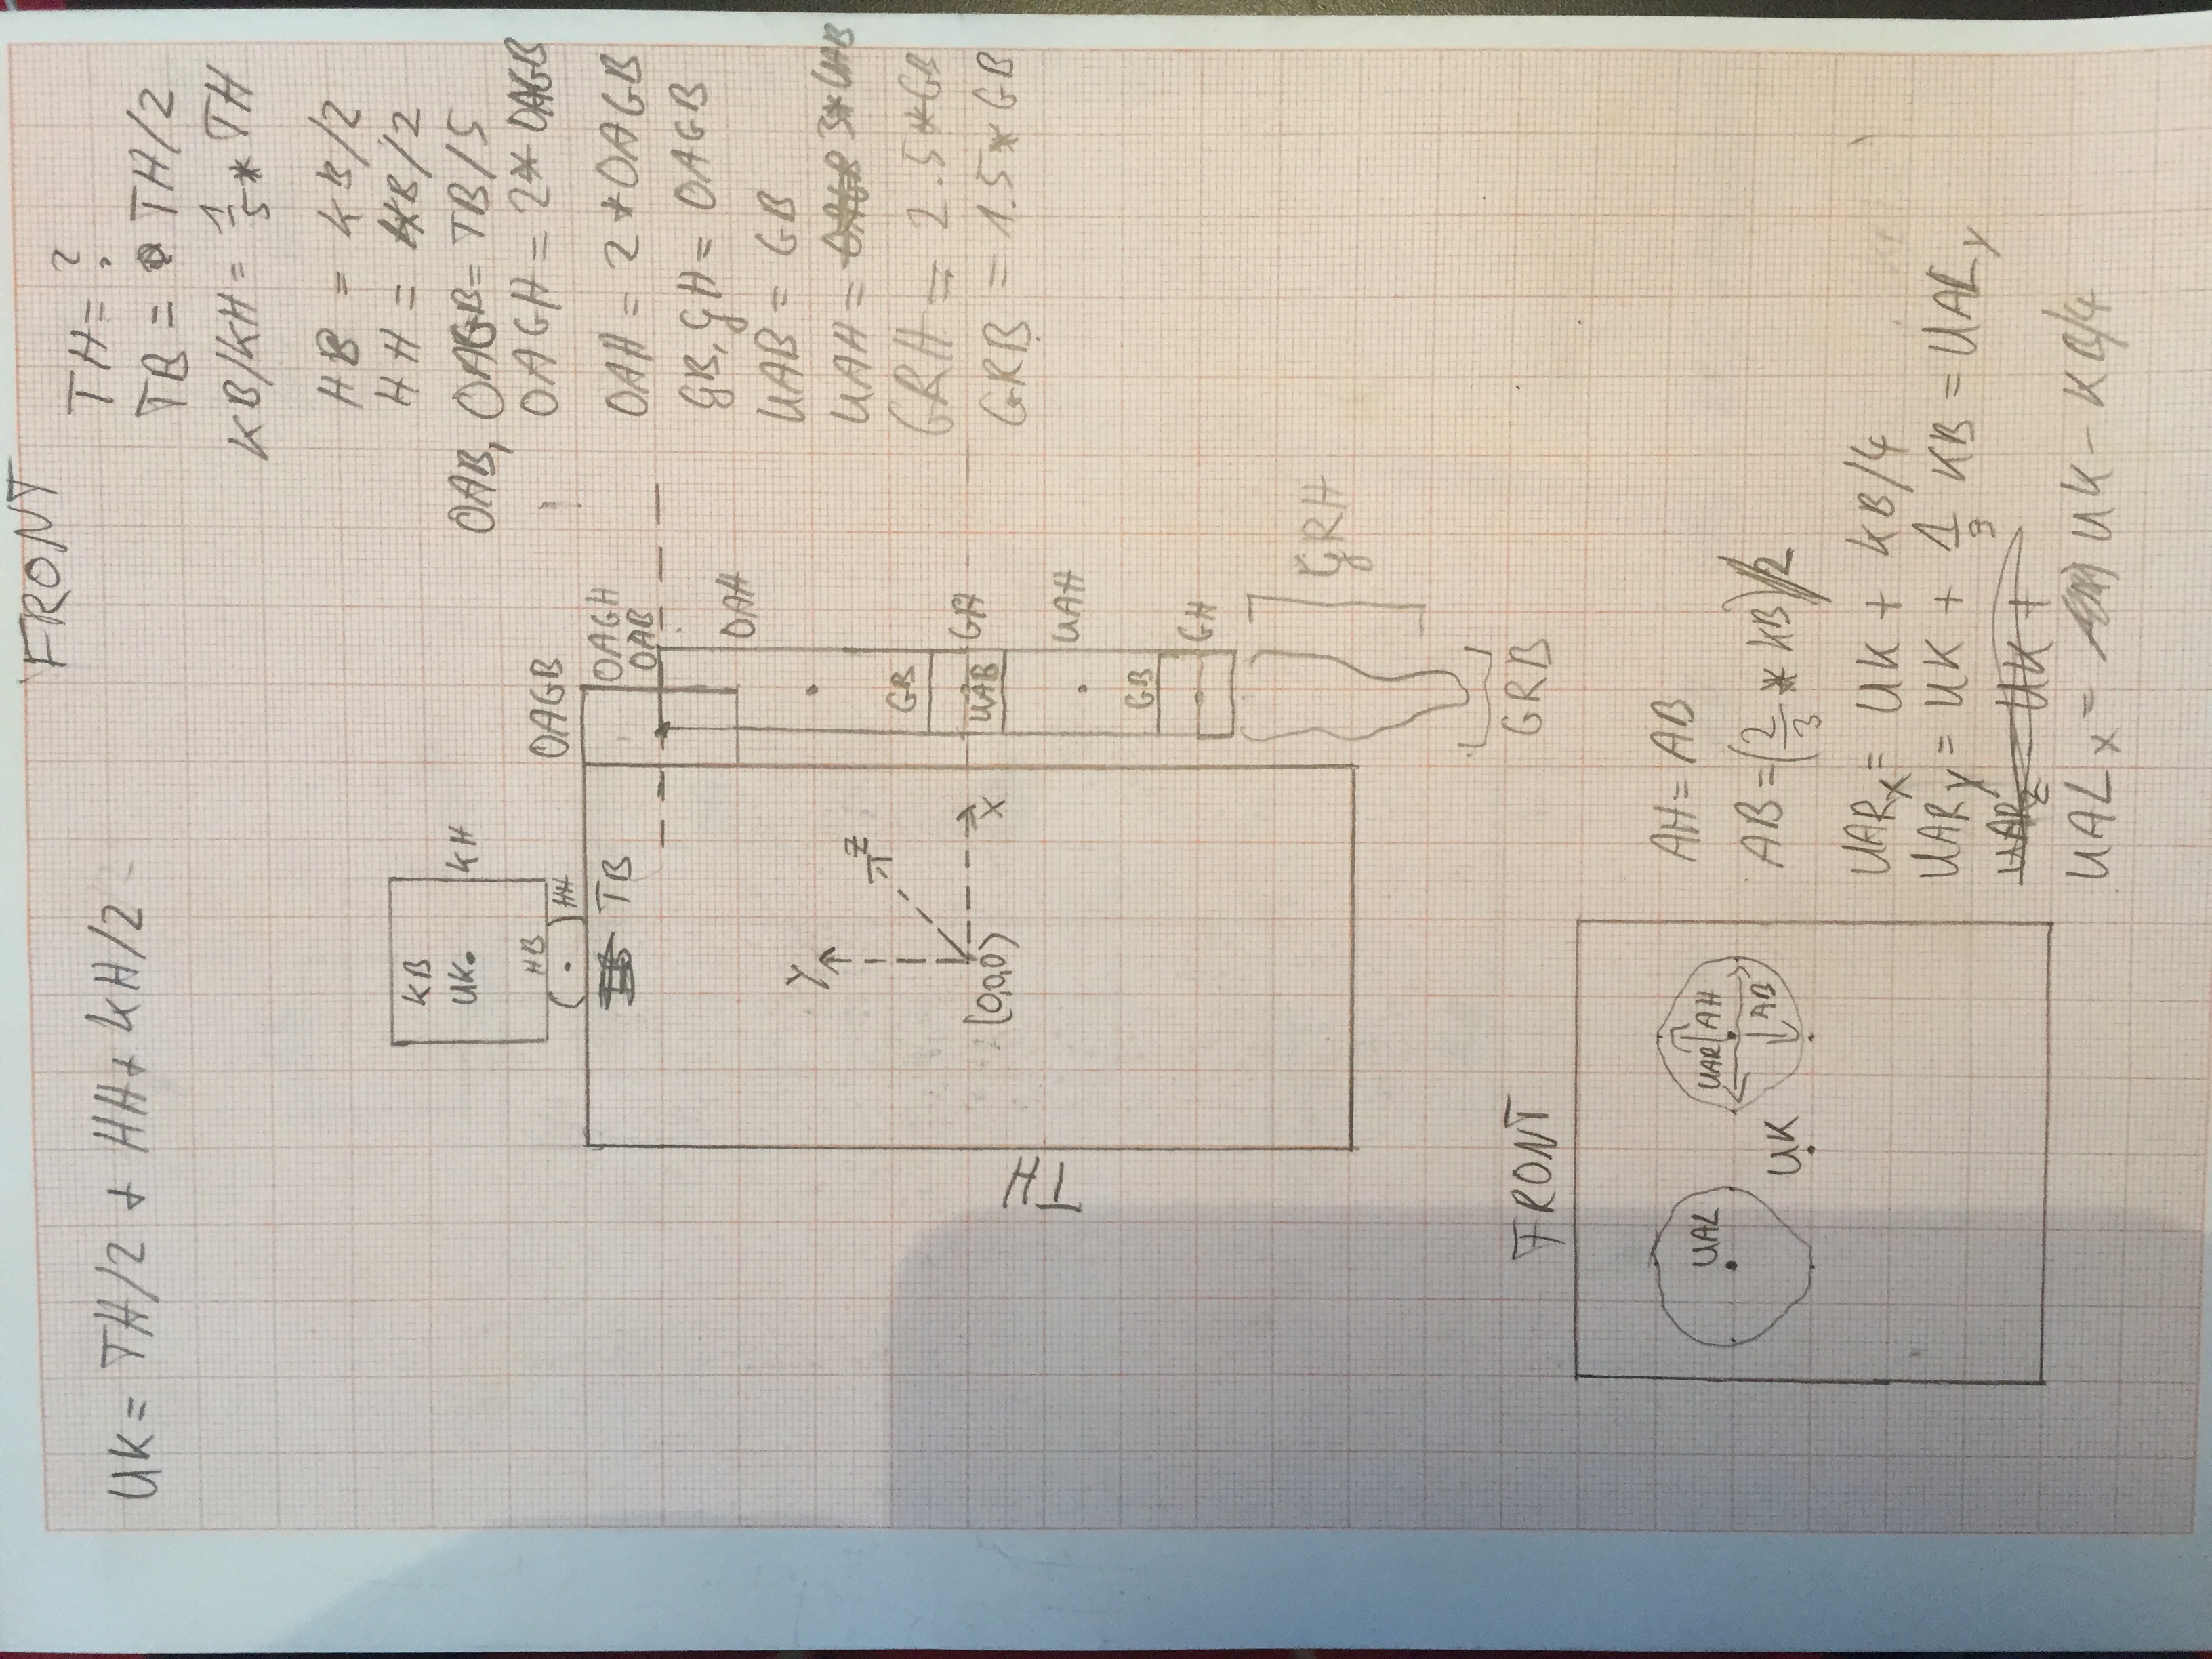 FRONT
UK = TH/2 + HH + KH/2
TH = ?
TB = TH/2
KB/KH = 1/5 * TH
HB = KB/2
HH = KB/2
OAB, OAGB = TB/5
OAGH = 2 * OAGB
OAH = 2 * OAGB
GB, GH = OAGB
UAB = GB
UAH = 3 * UAB
GRH = 2.5 * GB
GRB = 1.5 * GB
KB
UK.
KH
HB
HH
OAGB
TB
OAGH
OAB
OAH
Y
Z
GB
(0,0,0)
X
UAB
GH
TH
UAH
GB
GH
GRH
GRB
FRONT
UAL
UAR
AH
AB
UK
AH = AB
AB = (2/3 * KB)/2
UARx = UK + KB/4
UARy = UK + 1/3 KB = UALy
UARz = UK +
UALx = UK - KB/4